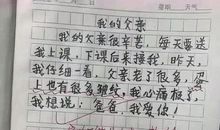 天气
我的父亲
我的父亲很辛苦,每天要送
我上课,下课后来接我,昨天,
我仔细一看,父亲老了很多,
上也有很多皱纹,我心痛极了,
我想说:爸爸,我爱你!